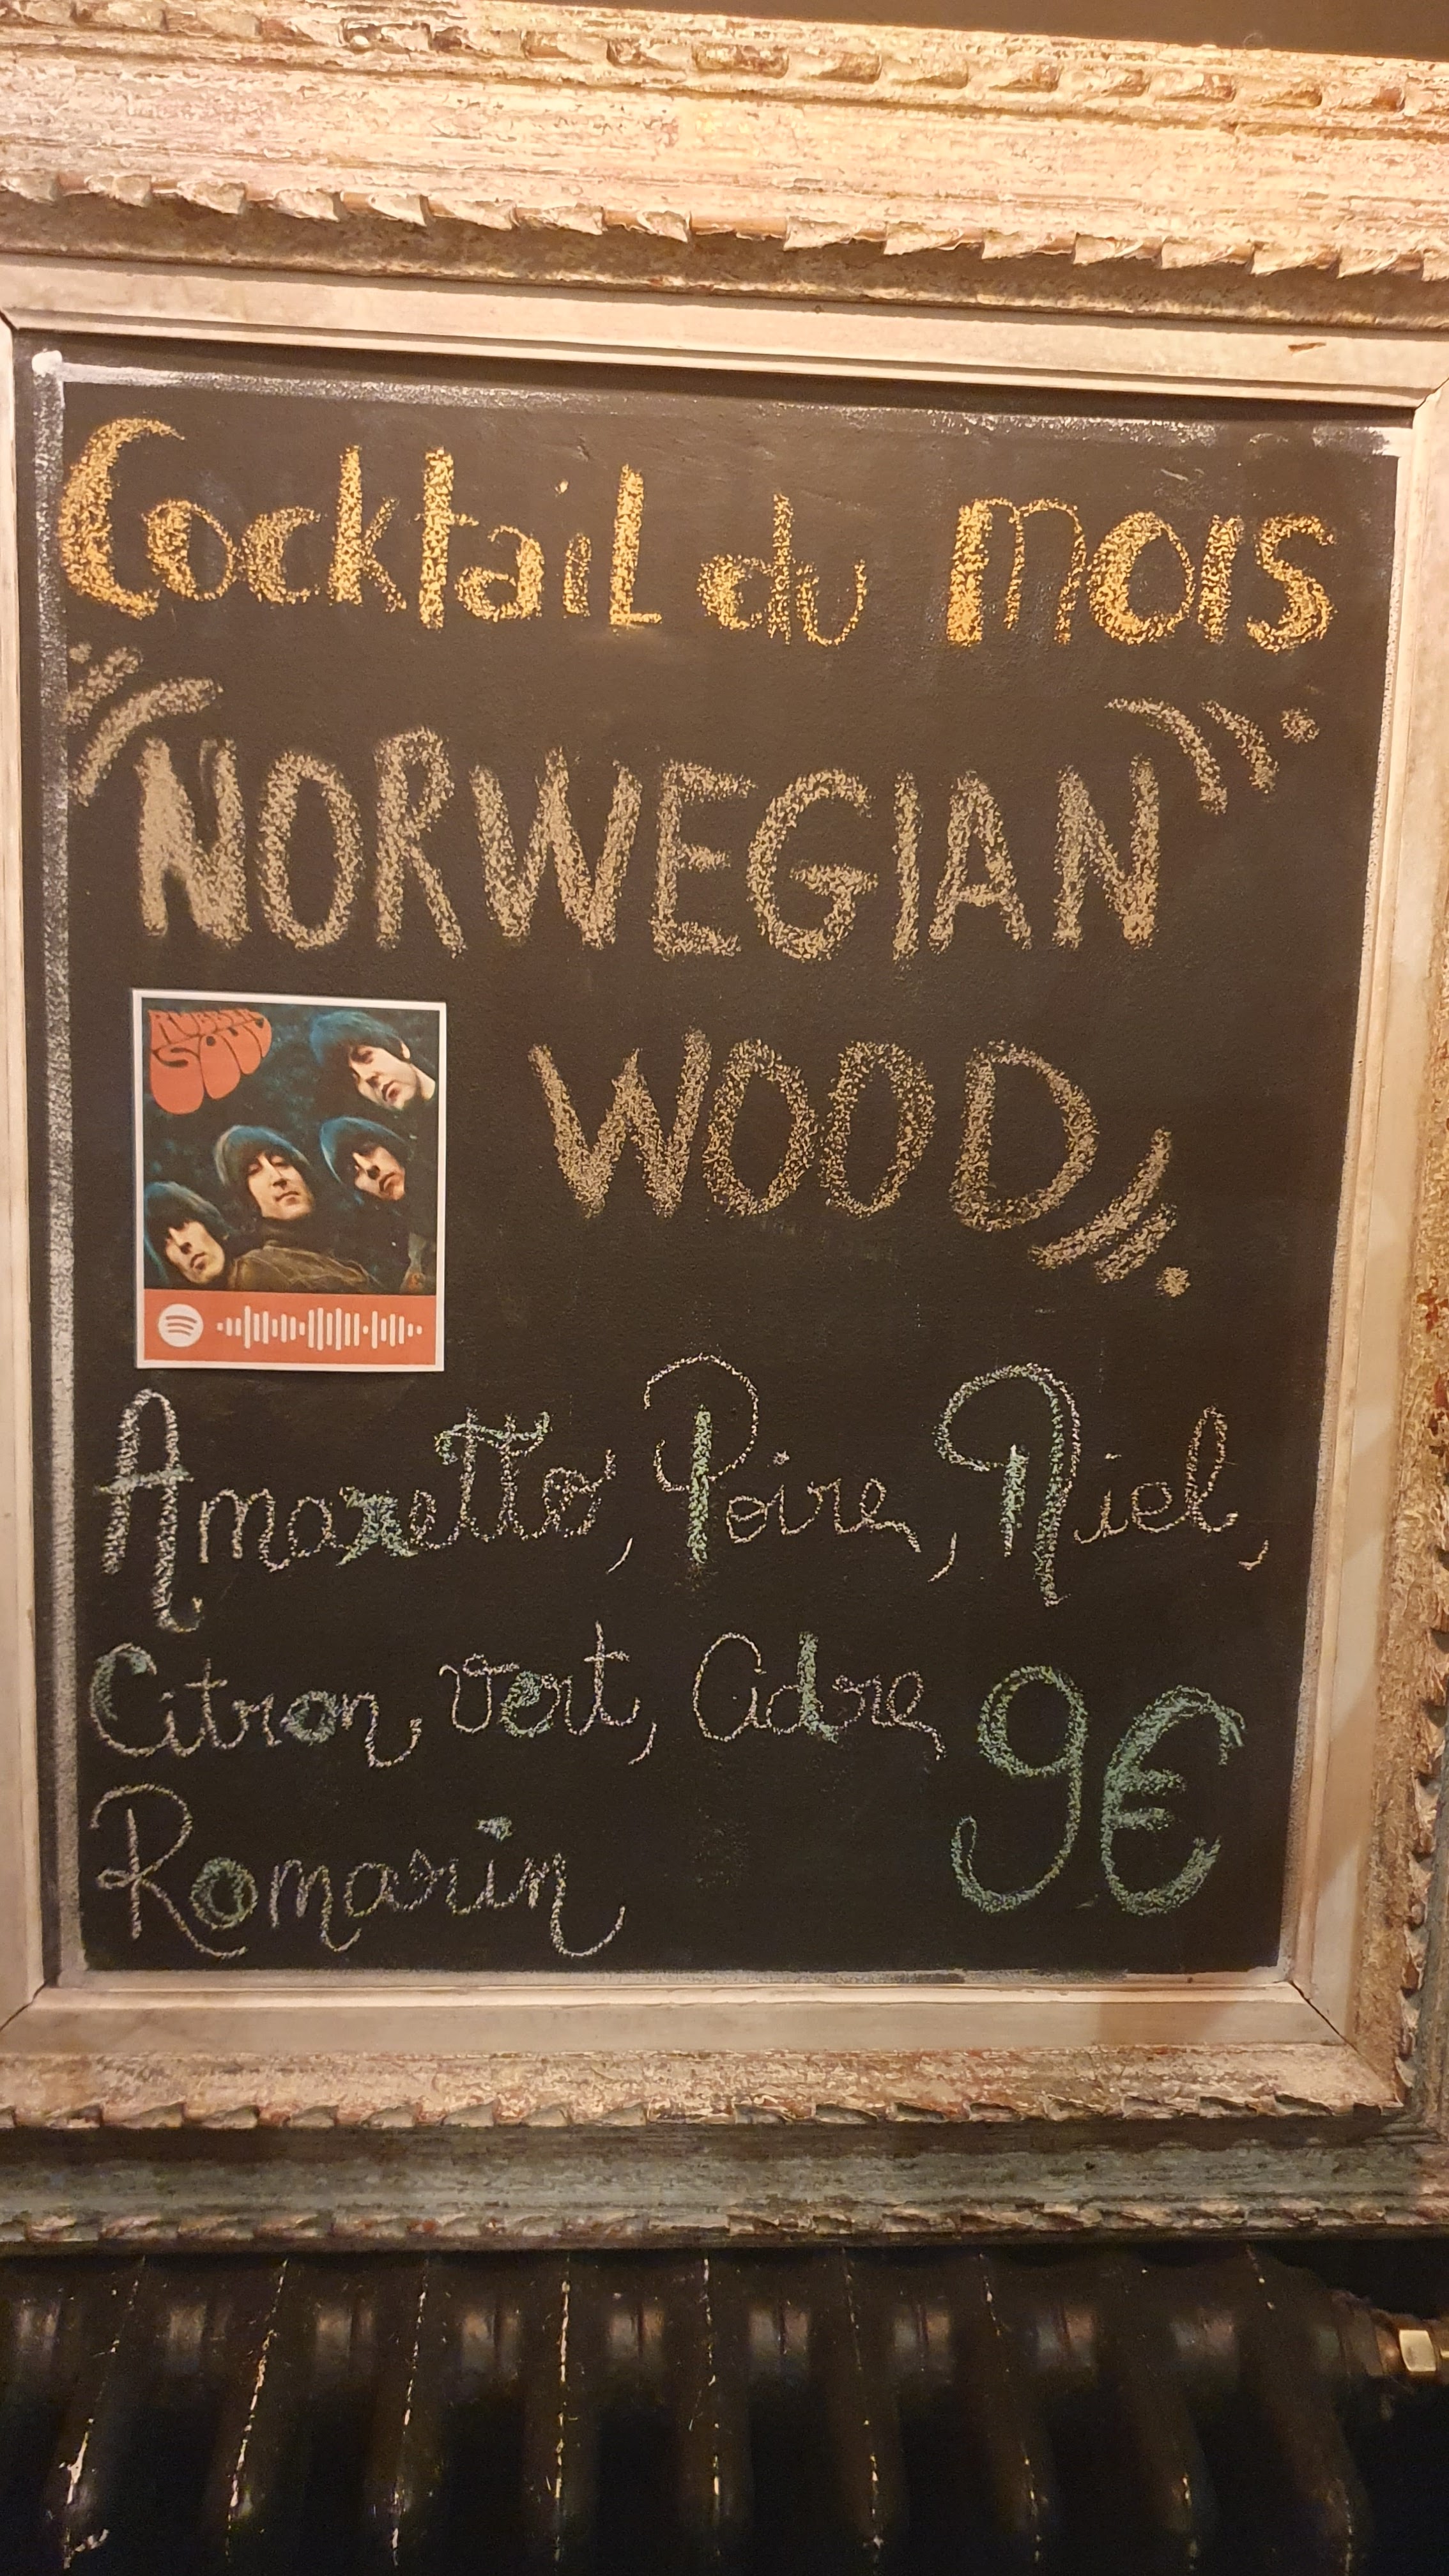 Cocktail du mois
NORWEGIAN
WOOD
RUBBER
SOUL
Amaretto, Poire, Miel,
Citron vert, Cidre
Romarin
9€